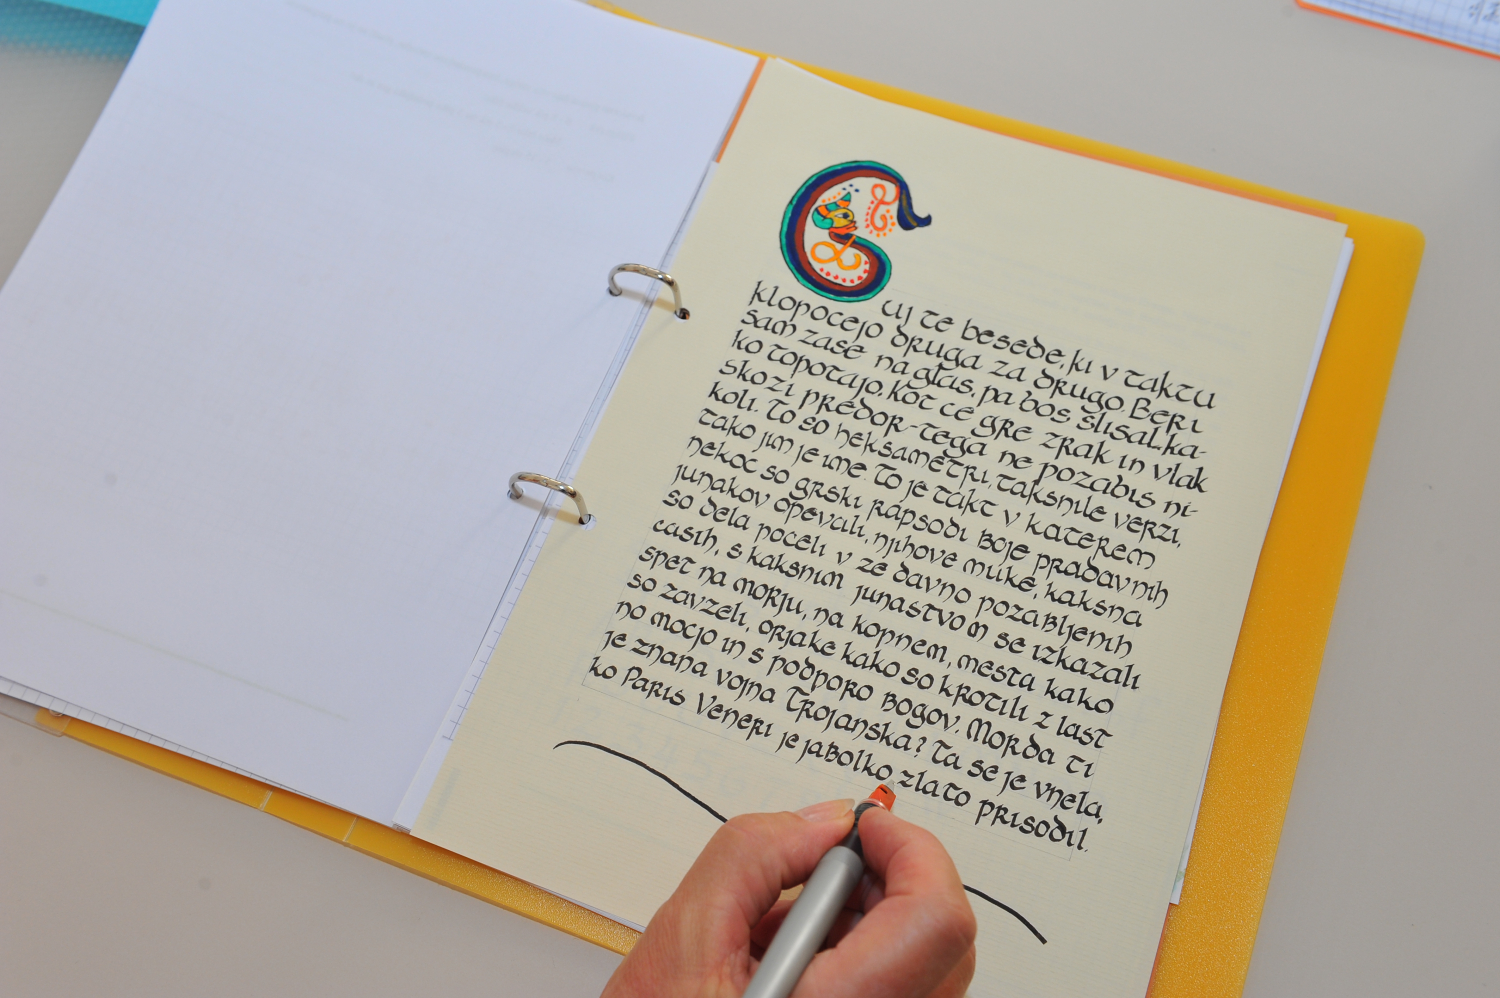 Cuj te besede, ki v taktu
klopocejo druga za drugo. Beri
sam zase naglas, pa bos slisal, ka-
ko topotajo, kot ce gre zrak in vlak
skozi predor - tega ne pozabis ni-
koli. To so heksametri, taksnile verzi,
tako jim je ime. To je takt v katerem
nekoc so grski rapsodi boje pradavnih
junakov opevali, njihove muke, kaksna
so dela poceli v ze davno pozabljenih
casih, s kaksnim junastvom se izkazali
spet na morju, na kopnem, mesta kako
so zavzeli, orjake kako so krotili z last
no mocjo in s podporo bogov. Morda ti
je znana vojna Trojanska? Ta se je vnela,
ko Paris Veneri je jabolko zlato prisodil.